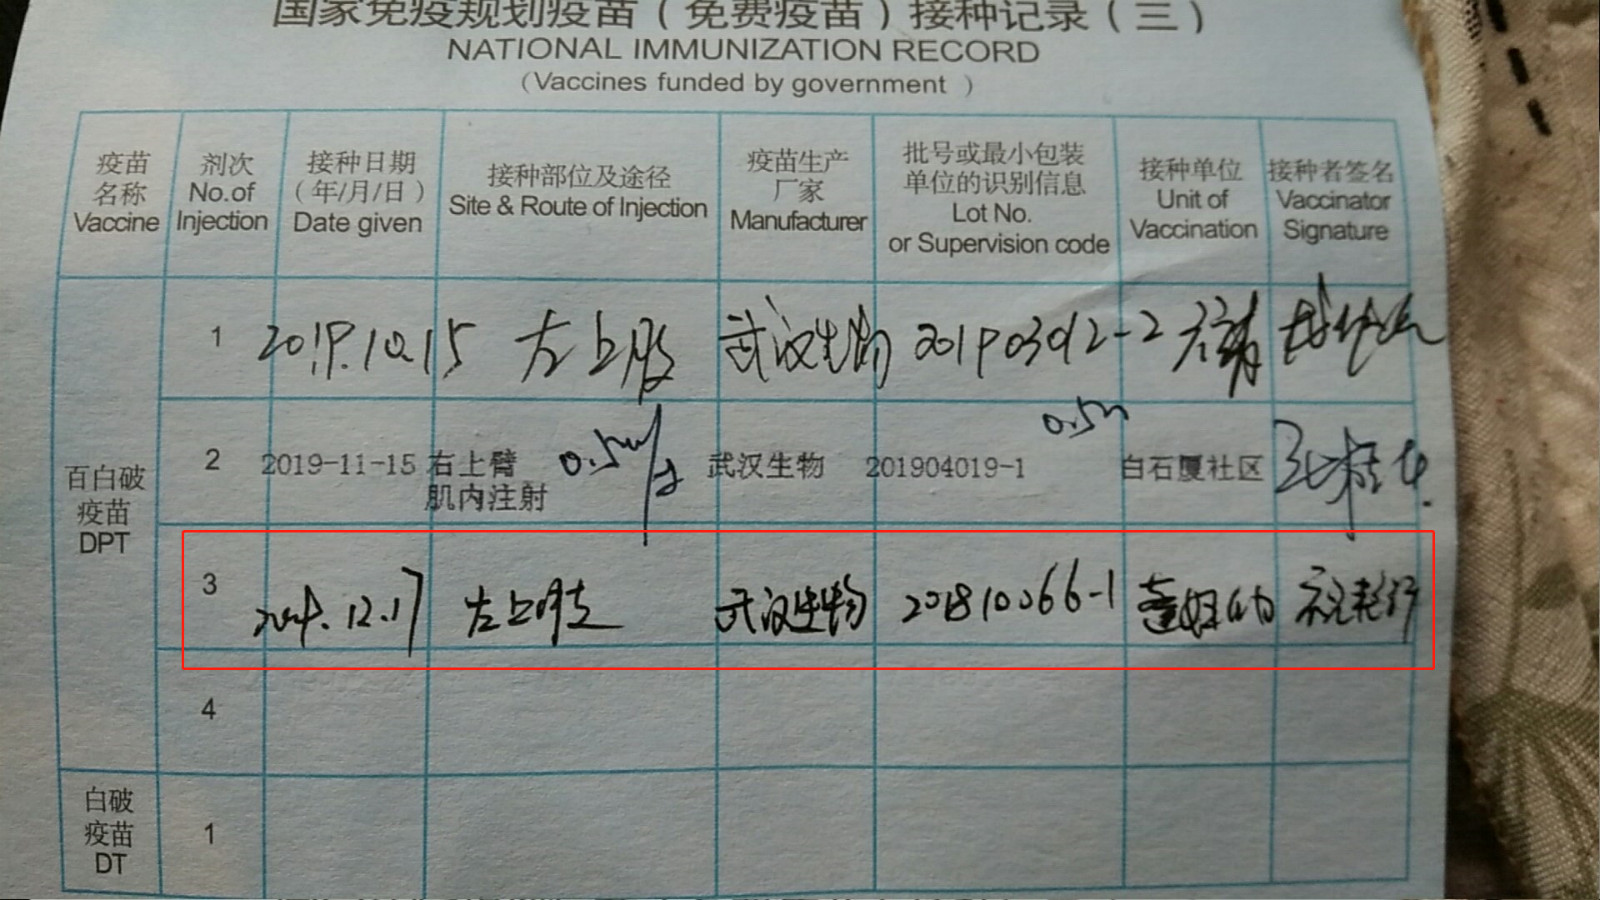 国家免疫规划疫苗（免费疫苗）接种记录（三）
NATIONAL IMMUNIZATION RECORD
（Vaccines funded by government ）
疫苗
名称
Vaccine
剂次
No.of
Injection
接种日期
（年/月/日）
Date given
接种部位及途径
Site & Route of Injection
疫苗生产
厂家
Manufacturer
批号或最小包装
单位的识别信息
Lot No.
or Supervision code
接种单位
Unit of
Vaccination
接种者签名
Vaccinator
Signature
百白破
疫苗
DPT
1 2019.10.15 左上肢 武汉生物 201903012-2
2 2019-11-15 右上臂
肌内注射
0.5ml
武汉生物 201904019-1
0.5m
白石厦社区
3 2019.12.17 左上肢 武汉生物 201810066-1
4
白破
疫苗
DT
1